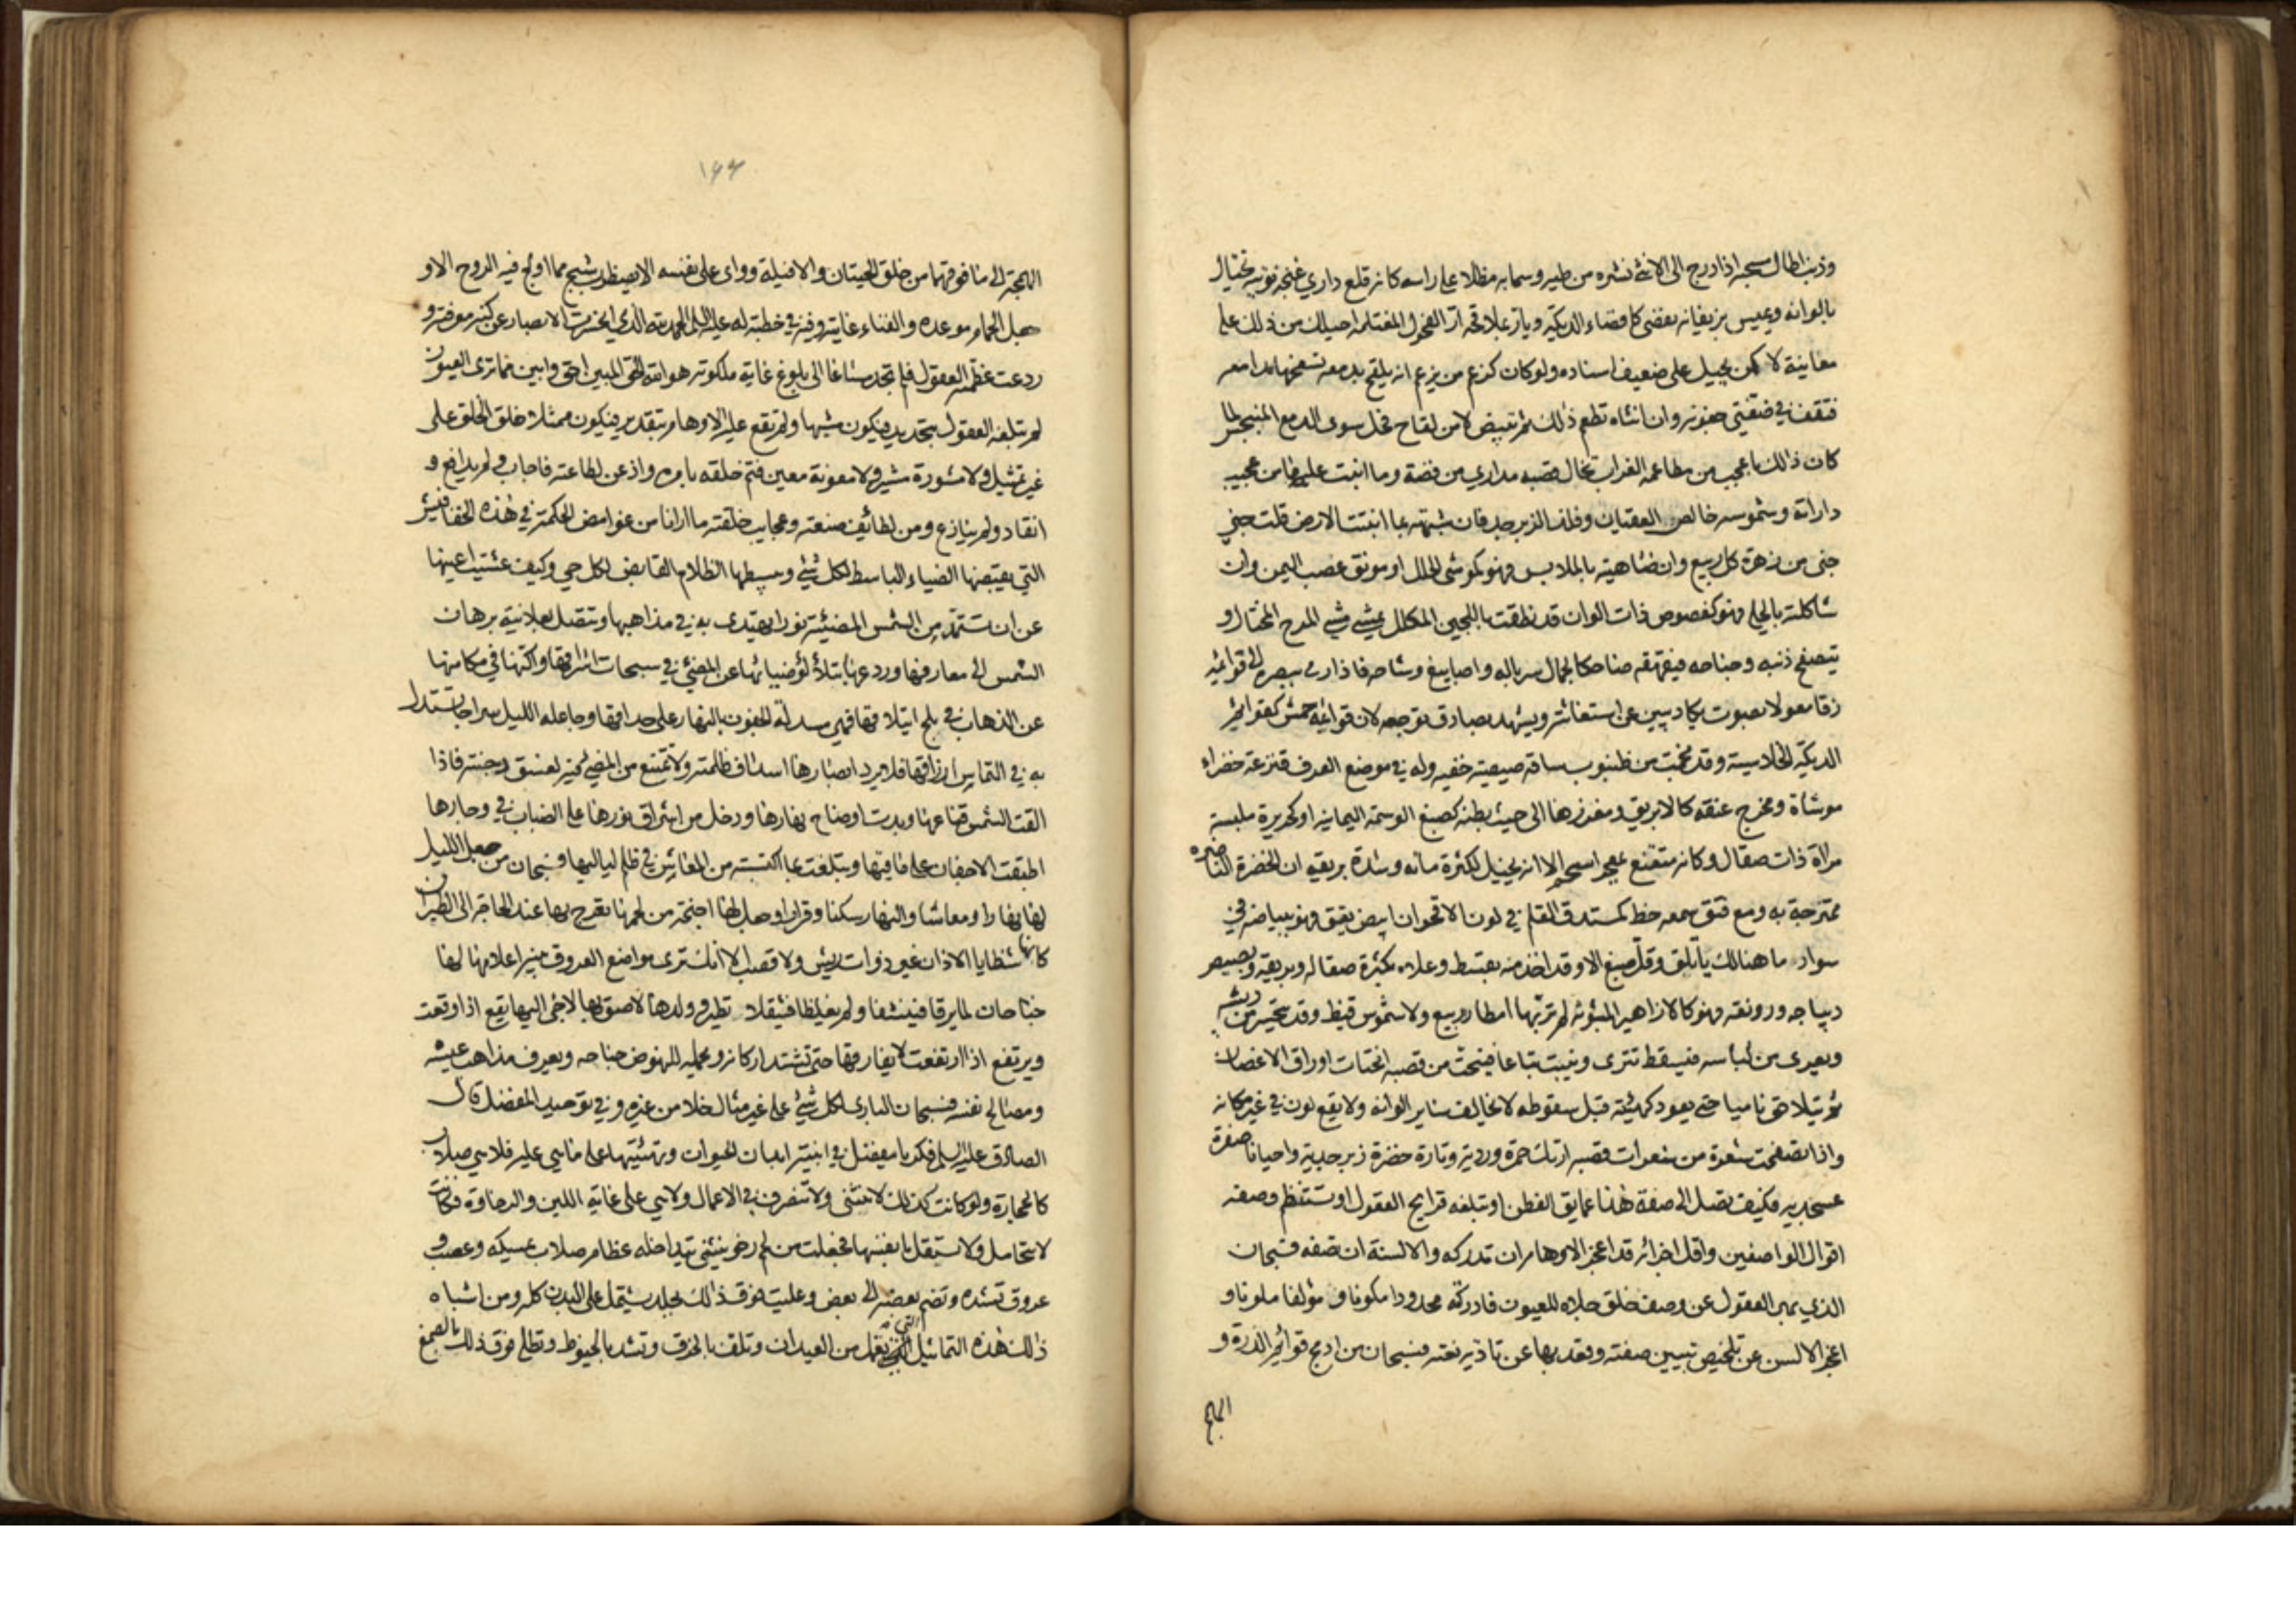 وذنب اطال مسحبه اذا درج الى الانثى نشره من طيه وسما به مظلا على راسه كانه قلع داري عنجه نوتيه يختال
بالوانه ويميس بزيفانه يفضي كافضاء الديكة ويأر بملاقحة ار الفحول المغتلمة احيلك من ذلك على
معاينة لا كمن يحيل على ضعيف اسناده ولو كان كزعم من يزعم انه يلقح بدمعة تسفحها مدامعه
فتقف في ضفتي جفونه وان انثاه تطعم ذلك ثم تبيض لا من لقاح فحل سوى الدمع المنبجس لما
كان ذلك باعجب من مطاعمة الغراب تخال قصبه مداري من فضة وما انبت عليها من عجيب
داراته وشموسه خالص العقيان وفلذ الزبرجد فان شبهته بما انبتت الارض قلت جني
جنى من زهرة كل ربيع وان ضاهيته بالملابس فهو كموشى الحلل او مونق عصب اليمن وان
شاكلته بالحلي فهو كفصوص ذات الوان قد نطقت باللجين المكلل يمشي مشي المرح المختال و
يتصفح ذنبه وجناحه فيقهقه ضاحكا لجمال سرباله واصابيغ وشاحه فاذا رمى ببصره الى قوائمه
زقا معولا بصوت يكاد يبين عن استغاثته ويشهد بصادق توجعه لان قوائمه حمش كقوائم
الديكة الخلاسية وقد نجمت من ظنبوب ساقه صيصية خفيه وله في موضع العرف قنزعة خضراء
موشاة ومخرج عنقه كالابريق ومغرزها الى حيث بطنه كصبغ الوسمة اليمانيه او كحريرة ملبسة
مراة ذات صقال وكانه متقنع بمعجر اسحم الا انه يخيل لكثرة مائه وشدة بريقه ان الخضرة الناضره
ممتزجة به ومع فتق سمعه خط كمستدق القلم في لون الاقحوان ابيض يقق فهو ببياضه في
سواد ما هنالك يأتلق وقل صبغ الا وقد اخذ منه بقسط وعلاه بكثرة صقاله وبريقه وبصيص
ديباجه ورونقه فهو كالازاهير المبثوثه لم تربها امطار ربيع ولا شموس قيظ وقد يتحسر من ريشه
ويعرى من لباسه فيسقط تترى وينبت تباعا فينحت من قصبه انحتات اوراق الاغصان
ثم يتلاحق ناميا حتى يعود كهيئته قبل سقوطه لا يخالف سائر الوانه ولا يقع لون في غير مكانه
واذا تصفحت شعرة من شعرات قصبه ارتك حمرة وردية وتارة خضرة زبرجدية واحيانا صفرة
عسجديه فكيف تصل الى صفة هذا عمايق الفطن او تبلغه قرايح العقول او تستنظم وصفه
اقوال الواصفين واقل اجزائه قد اعجز الاوهام ان تدركه والالسنة ان تصفه فسبحان
الذي بهر العقول عن وصف خلق جلاه للعيون فادركته محدودا مكونا و مؤلفا ملونا و
اعجز الالسن عن تلخيص تبيين صفته وقعد بها عن تادية نعته فسبحان من ادمج قوائم الذرة و
الهمج
١٤٤
الهمجة الى ما فوقهما من خلق الحيتان والافيلة وواى على نفسه الا يضطرب شبح مما اولج فيه الروح الا و
جعل الحمام موعده والفناء غايته وفيه في خطبته له عليه السلم الحمد لله الذي انحسرت الابصار عن كنه معرفته و
ردعت عظمته العقول فلم تجد مساغا الى بلوغ غاية ملكوته هو الله الحق المبين احق وابين مما ترى العيون
لم تبلغه العقول بتحديد فيكون مشبها ولم تقع عليه الاوهام بتقدير فيكون ممثلا خلق الخلق على
غير تمثيل ولا مشورة مشير ولا معونة معين فتم خلقه بامره واذعن لطاعته فاجاب ولم يدافع و
انقاد ولم ينازع ومن لطائف صنعته وعجايب خلقته ما ارانا من غوامض الحكمة في هذه الخفافيش
التي يقبضها الضياء الباسط لكل شئ ويبسطها الظلام القابض لكل حي وكيف عشيت اعينها
عن ان تستمد من الشمس المضيئة نورا تهتدي به في مذاهبها وتتصل بعلانية برهان
الشمس الى معارفها وردعها بتلألؤ ضيائها عن المضي في سبحات اشراقها واكنها في مكامنها
عن الذهاب في بلج ايتلاقها فهي مسدلة الجفون بالنهار على حداقها وجاعلة الليل سراجا تستدل
به في التماس ارزاقها فلا يرد ابصارها اسداف ظلمته ولا تمتنع من المضي فيه لغسق دجنته فاذا
القت الشمس قناعها وبدت اوضاح نهارها ودخل من اشراق نورها على الضباب في وجارها
اطبقت الاجفان على ماقيها وتبلغت بما اكتسبته من المعاش في ظلم لياليها فسبحان من جعل الليل
لها نهارا ومعاشا والنهار سكنا وقرارا وجعل لها اجنحة من لحمها تعرج بها عند الحاجة الى الطيران
كانها شظايا الاذان غير ذوات ريش ولا قصب الا انك ترى مواضع العروق بينه اعلاما لها
جناحان لما يرقا فينشقا ولم يغلظا فيثقلا تطير وولدها لاصق بها لاجئ اليها يقع اذا وقعت
ويرتفع اذا ارتفعت لا يفارقها حتى تشتد اركانه ويحمله للنهوض جناحه ويعرف مذاهب عيشه
ومصالح نفسه فسبحان البارئ لكل شئ على غير مثال خلا من غيره وفي توحيد المفضل قال
الصادق عليه السلم فكر يا مفضل في ابنية ابدان الحيوان وتهيئتها على ما هي عليه فلا هي صلاب
كالحجارة ولو كانت كذلك لا تنثني ولا تتصرف في الاعمال ولا هي على غاية اللين والرخاوة فكانت
لا تتحامل ولا تستقل بانفسها فجعلت من لحم رخو ينثني تتداخله عظام صلاب يمسكه وعصب و
عروق تشده وتضم بعضه الى بعض وعليت فوق ذلك بجلد يشتمل على البدن كله ومن اشباه
ذلك هذه التماثيل التي تعمل من العيدان وتلف بالخرق وتشد بالخيوط وتطلى فوق ذلك بالصمغ